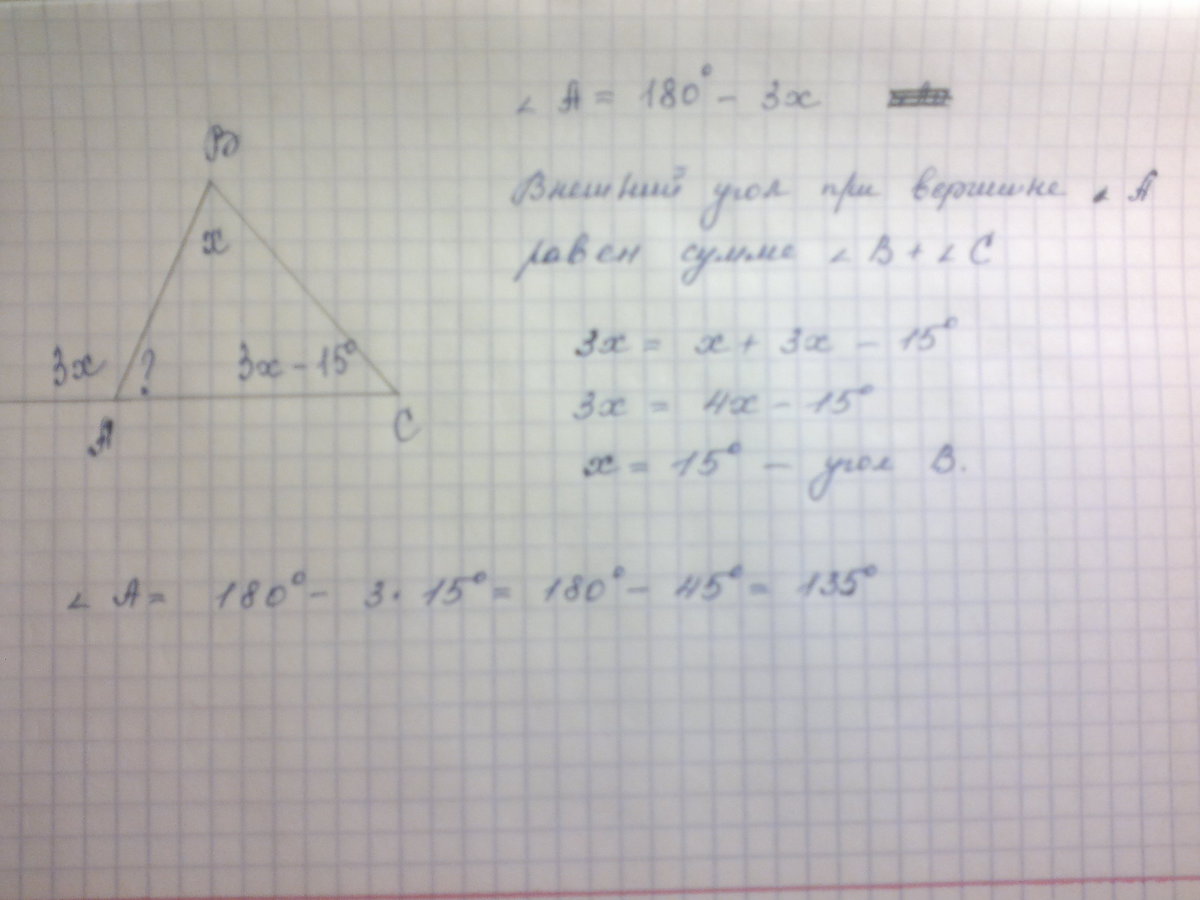 ∠ A = 180° - 3x
B
x
3x
?
3x - 15°
A
C
Внешний угол при вершине ∠ A
равен сумме ∠ B + ∠ C
3x = x + 3x - 15°
3x = 4x - 15°
x = 15° - угол B.
∠ A = 180° - 3 · 15° = 180° - 45° = 135°